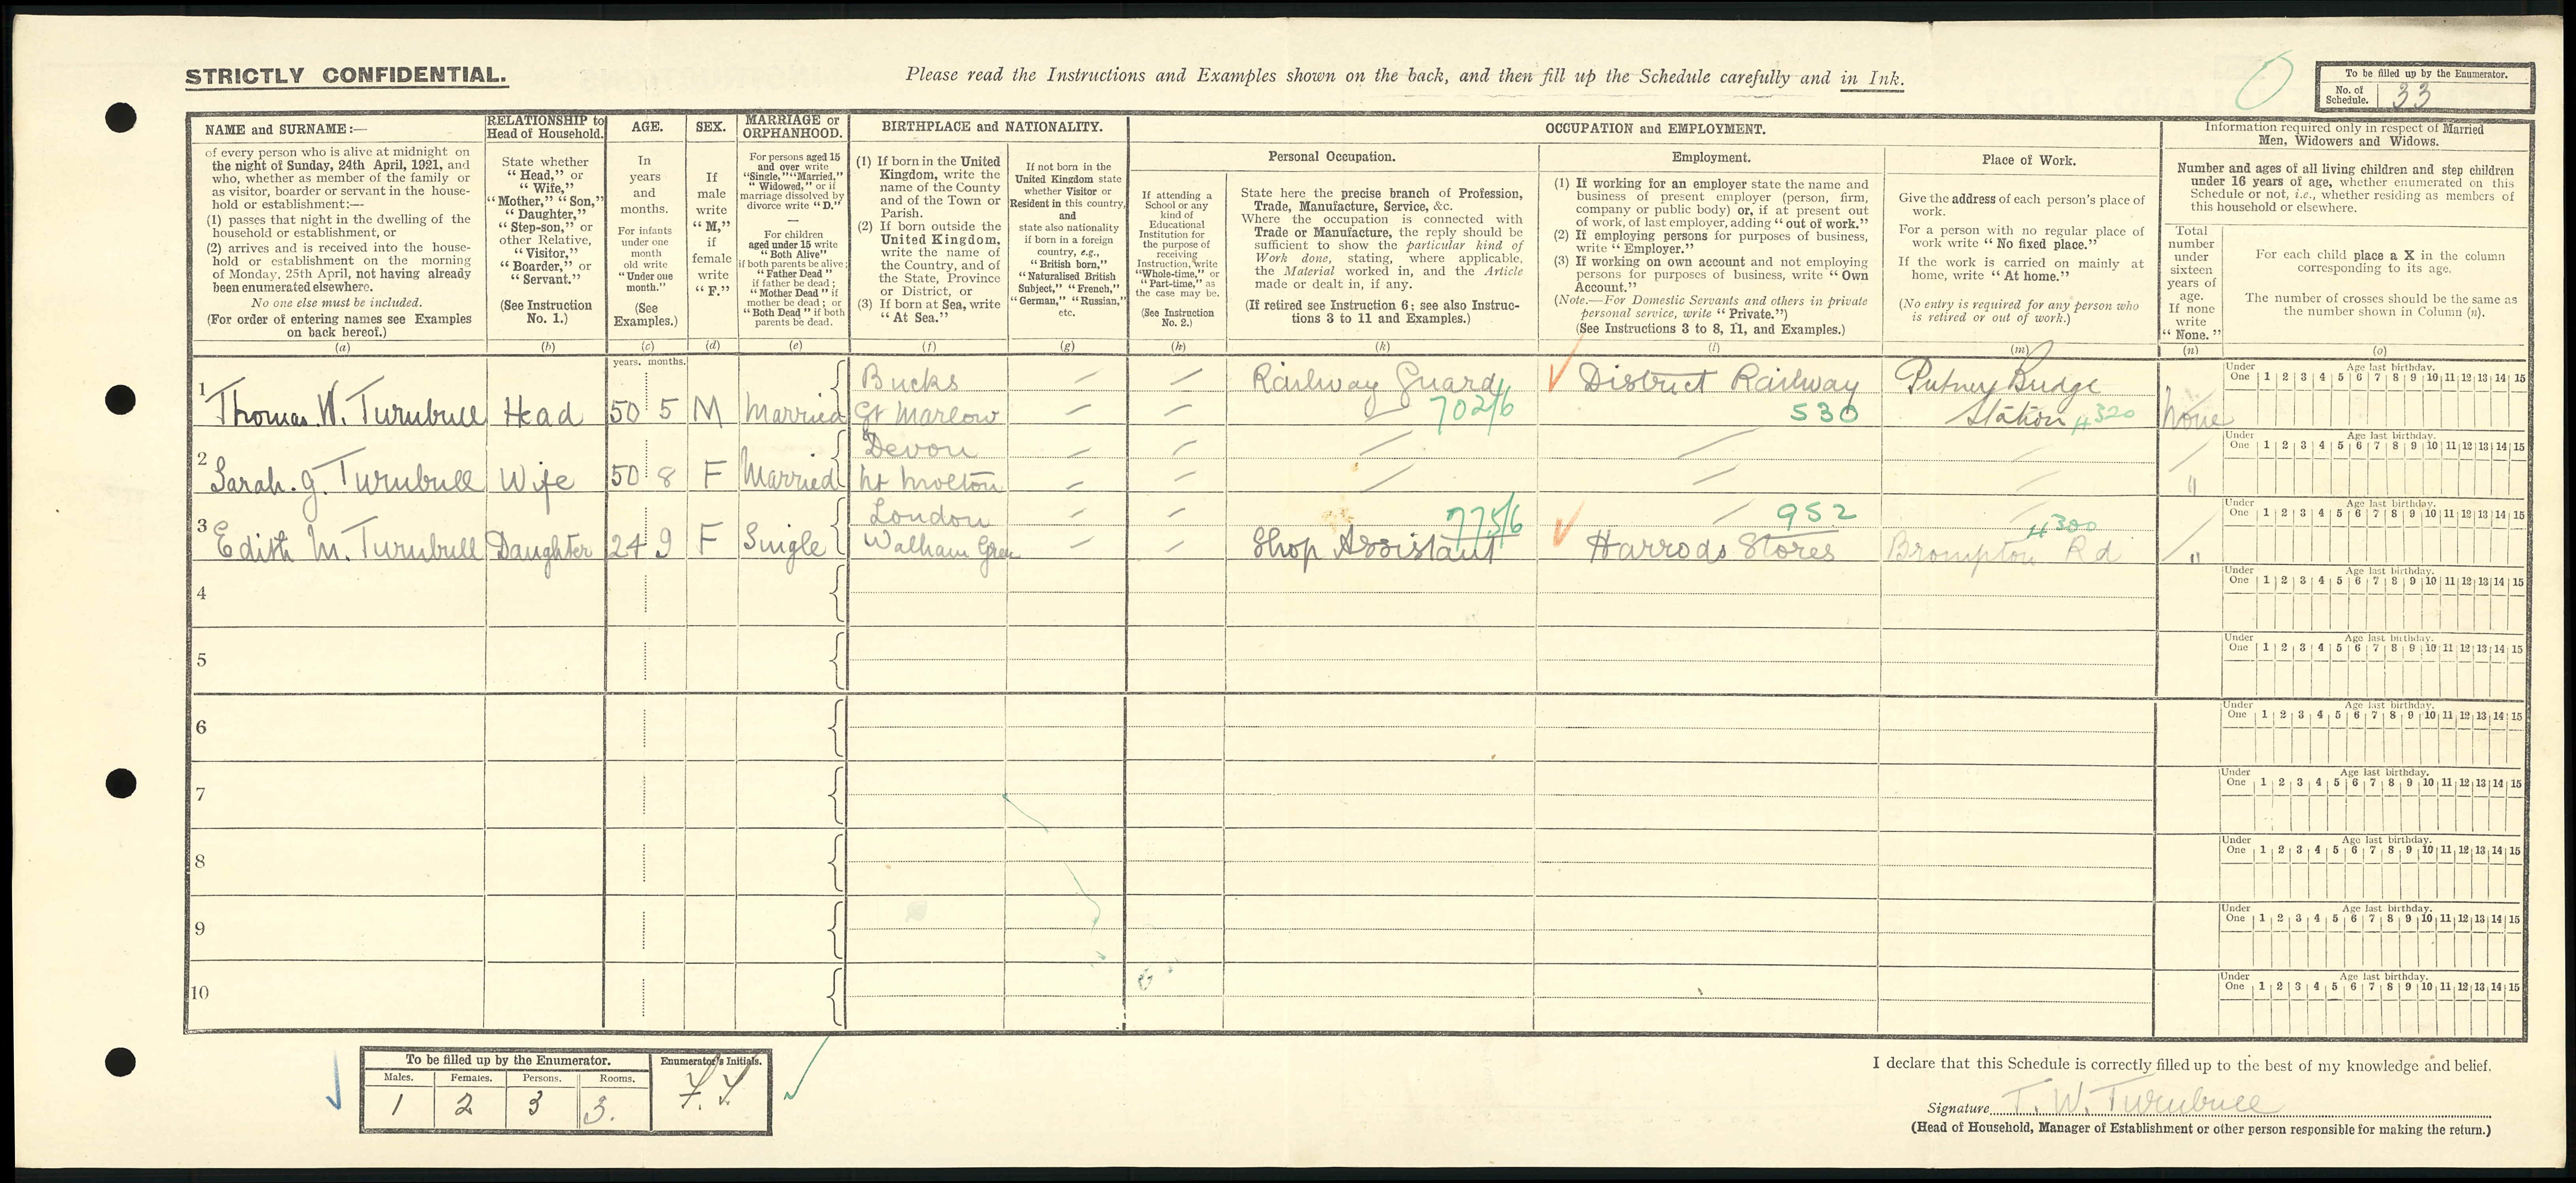 STRICTLY CONFIDENTIAL.
Please read the Instructions and Examples shown on the back, and then fill up the Schedule carefully and in Ink.
To be filled up by the Enumerator.
No. of Schedule. 33
NAME and SURNAME:—
of every person who is alive at midnight on
the night of Sunday, 24th April, 1921, and
who, whether as member of the family or
as visitor, boarder or servant in the house-
hold or establishment:—
(1) passes that night in the dwelling of the
household or establishment, or
(2) arrives and is received into the house-
hold or establishment on the morning
of Monday, 25th April, not having already
been enumerated elsewhere.
No one else must be included.
(For order of entering names see Examples
on back hereof.)
(a)
RELATIONSHIP to
Head of Household.
State whether
"Head," or
"Wife,"
"Mother," "Son,"
"Daughter,"
"Step-son," or
other Relative,
"Visitor,"
"Boarder," or
"Servant."
(See Instruction
No. 1.)
(b)
AGE.
In
years
and
months.
For infants
under one
month
old write
"Under one
month."
(See
Examples.)
(c)
SEX.
If
male
write
"M,"
if
female
write
"F."
(d)
MARRIAGE or
ORPHANHOOD.
For persons aged 15
and over write
"Single," "Married,"
"Widowed," or if
marriage dissolved by
divorce write "D."
—
For children
aged under 15 write
"Both Alive"
if both parents be alive;
"Father Dead"
if father be dead;
"Mother Dead" if
mother be dead; or
"Both Dead" if both
parents be dead.
(e)
BIRTHPLACE and NATIONALITY.
(1) If born in the United
Kingdom, write the
name of the County
and of the Town or
Parish.
(2) If born outside the
United Kingdom,
write the name of
the Country, and of
the State, Province
or District, or
(3) If born at Sea, write
"At Sea."
(f)
If not born in the
United Kingdom state
whether Visitor or
Resident in this country,
and
state also nationality
if born in a foreign
country, e.g.,
"British born,"
"Naturalised British
Subject," "French,"
"German," "Russian,"
etc.
(g)
OCCUPATION and EMPLOYMENT.
If attending a
School or any
kind of
Educational
Institution for
the purpose of
receiving
Instruction, write
"Whole-time," or
"Part-time," as
the case may be.
(See Instruction
No. 2.)
(h)
Personal Occupation.
State here the precise branch of Profession,
Trade, Manufacture, Service, &c.
Where the occupation is connected with
Trade or Manufacture, the reply should be
sufficient to show the particular kind of
Work done, stating, where applicable,
the Material worked in, and the Article
made or dealt in, if any.
(If retired see Instruction 6; see also Instruc-
tions 3 to 11 and Examples.)
(k)
Employment.
(1) If working for an employer state the name and
business of present employer (person, firm,
company or public body) or, if at present out
of work, of last employer, adding "out of work."
(2) If employing persons for purposes of business,
write "Employer."
(3) If working on own account and not employing
persons for purposes of business, write "Own
Account."
(Note.—For Domestic Servants and others in private
personal service, write "Private.")
(See Instructions 3 to 8, 11, and Examples.)
(l)
Place of Work.
Give the address of each person's place of
work.
For a person with no regular place of
work write "No fixed place."
If the work is carried on mainly at
home, write "At home."
(No entry is required for any person who
is retired or out of work.)
(m)
Information required only in respect of Married
Men, Widowers and Widows.
Number and ages of all living children and step children
under 16 years of age, whether enumerated on this
Schedule or not, i.e., whether residing as members of
this household or elsewhere.
Total
number
under
sixteen
years of
age.
If none
write
"None."
(n)
For each child place a X in the column
corresponding to its age.
The number of crosses should be the same as
the number shown in Column (n).
(o)
years. months.
Under One Age last birthday. 1 2 3 4 5 6 7 8 9 10 11 12 13 14 15
Bucks Railway Guard District Railway Putney Bridge
1 Thomas W. Turnbull Head 50 5 M Married Gt Marlow 702/6 530 Station 4320 None
Under One Age last birthday. 1 2 3 4 5 6 7 8 9 10 11 12 13 14 15
Devon
2 Sarah. J. Turnbull Wife 50 8 F Married Nt Molton "
Under One Age last birthday. 1 2 3 4 5 6 7 8 9 10 11 12 13 14 15
London 775/6 952 4300
3 Edith M. Turnbull Daughter 24 9 F Single Walham Green Shop Assistant Harrods Stores Brompton Rd "
4 Under One Age last birthday. 1 2 3 4 5 6 7 8 9 10 11 12 13 14 15
5 Under One Age last birthday. 1 2 3 4 5 6 7 8 9 10 11 12 13 14 15
6 Under One Age last birthday. 1 2 3 4 5 6 7 8 9 10 11 12 13 14 15
7 Under One Age last birthday. 1 2 3 4 5 6 7 8 9 10 11 12 13 14 15
8 Under One Age last birthday. 1 2 3 4 5 6 7 8 9 10 11 12 13 14 15
9 Under One Age last birthday. 1 2 3 4 5 6 7 8 9 10 11 12 13 14 15
10 Under One Age last birthday. 1 2 3 4 5 6 7 8 9 10 11 12 13 14 15
To be filled up by the Enumerator.
Males. Females. Persons. Rooms.
1 2 3 3.
Enumerator's Initials.
I declare that this Schedule is correctly filled up to the best of my knowledge and belief.
Signature T. W. Turnbull
(Head of Household, Manager of Establishment or other person responsible for making the return.)